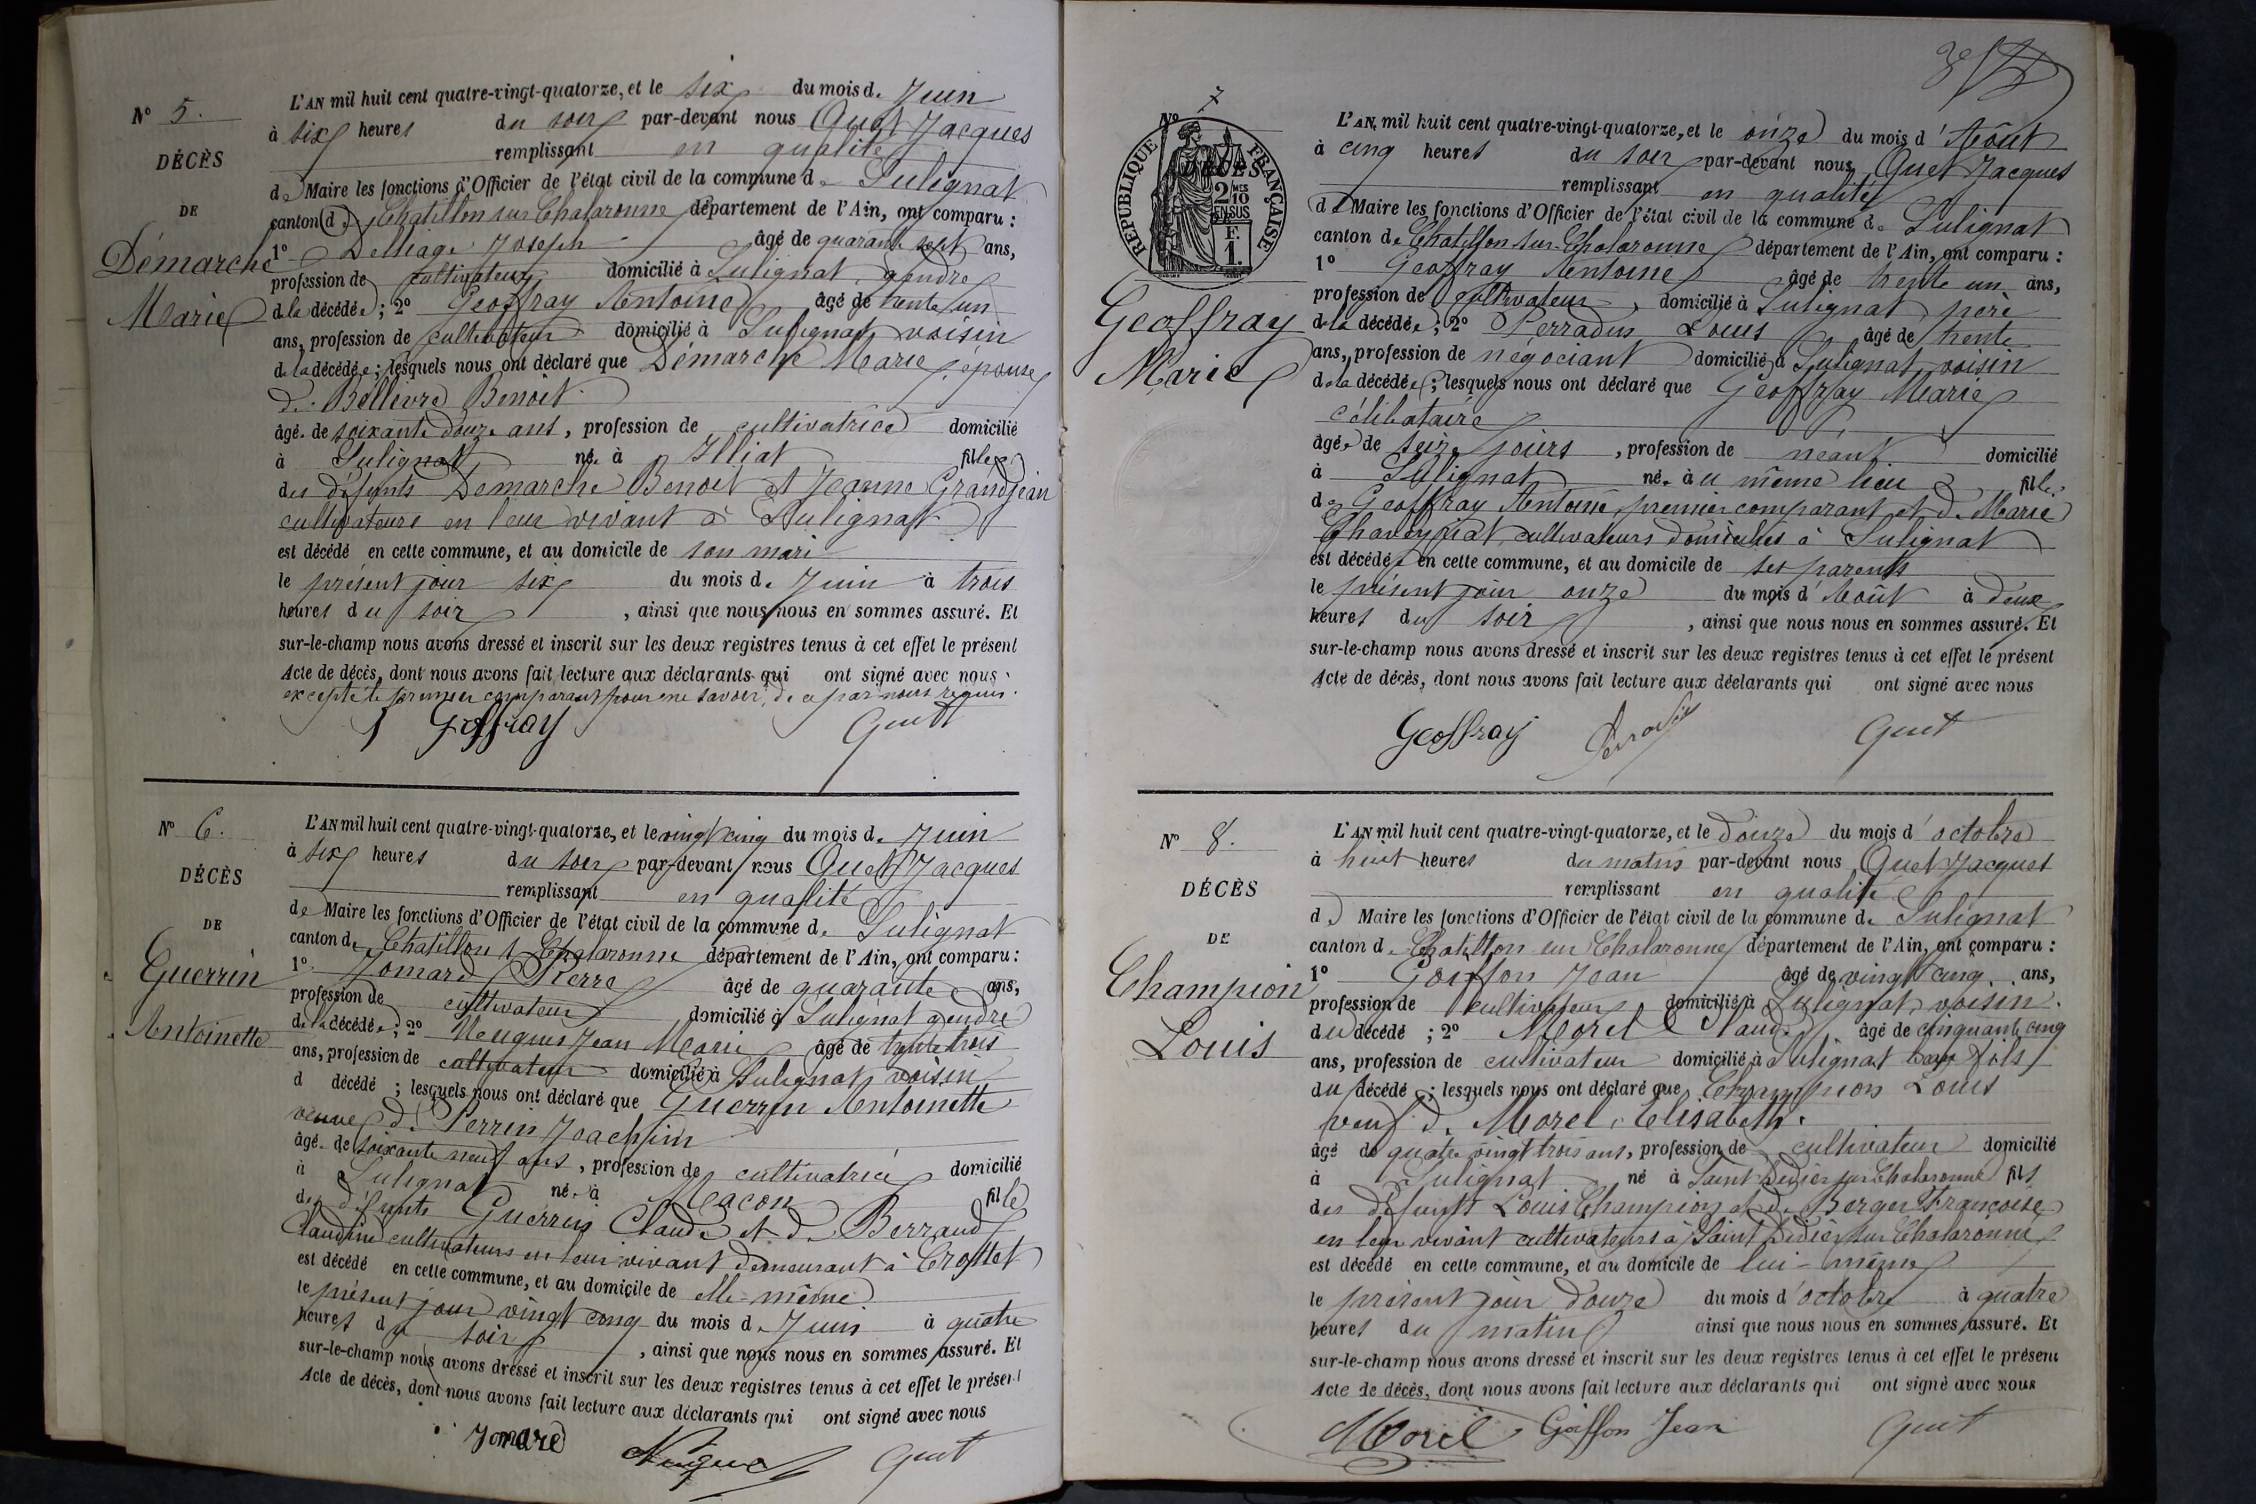 N° 5.
DÉCÈS
DE
Démarche
Marie
L'AN mil huit cent quatre-vingt-quatorze, et le six du mois de Juin
à six heures du soir par-devant nous Quet Jacques
remplissant en qualité
de Maire les fonctions d'Officier de l'état civil de la commune de Sulignat
canton de Chatillon sur Chalaronne département de l'Ain, ont comparu :
1° Delliage Joseph âgé de quarante sept ans,
profession de cultivateur domicilié à Sulignat, gendre
de la décédée ; 2° Geoffray Antoine âgé de trente un
ans, profession de cultivateur domicilié à Sulignat voisin
de la décédée ; lesquels nous ont déclaré que Démarche Marie, épouse
de Bellevre Benoit
âgée de soixante douze ans, profession de cultivatrice domicilié
à Sulignat née à Illiat fille
des défunts Démarche Benoit et Jeanne Grandjean
cultivateurs en leur vivant à Sulignat
est décédé en cette commune, et au domicile de son mari
le présent jour six du mois de Juin à trois
heures du soir, ainsi que nous nous en sommes assuré. Et
sur-le-champ nous avons dressé et inscrit sur les deux registres tenus à cet effet le présent
Acte de décès, dont nous avons fait lecture aux déclarants qui ont signé avec nous
excepté le premier comparant pour ne savoir, de ce par nous requis.
Geoffray Quet
N° 6.
DÉCÈS
DE
Guerrin
Antoinette
L'AN mil huit cent quatre-vingt-quatorze, et le vingt cinq du mois de Juin
à six heures du soir par-devant nous Quet Jacques
remplissant en qualité
de Maire les fonctions d'Officier de l'état civil de la commune de Sulignat
canton de Chatillon s Chalaronne département de l'Ain, ont comparu :
1° Jomard Pierre âgé de quarante ans,
profession de cultivateur domicilié à Sulignat gendre
de la décédée ; 2° Neugues Jean Marie âgé de trente trois
ans, profession de cultivateur domicilié à Sulignat voisin
d décédé ; lesquels nous ont déclaré que Guerrin Antoinette
veuve de Perrin Joachim
âgée de soixante neuf ans, profession de cultivatrice domicilié
à Sulignat née à Macon fille
des défunts Guerrin Claude et de Berraud
Claudine cultivateurs en leur vivant demeurant à Crottet
est décédé en cette commune, et au domicile de elle-même
le présent jour vingt cinq du mois de Juin à quatre
heures du soir, ainsi que nous nous en sommes assuré. Et
sur-le-champ nous avons dressé et inscrit sur les deux registres tenus à cet effet le présent
Acte de décès, dont nous avons fait lecture aux déclarants qui ont signé avec nous
Jomard Quet
N° 7
RÉPUBLIQUE FRANÇAISE
2 MES
10
EN SUS
F.
1.
Geoffray
Marie
L'AN, mil huit cent quatre-vingt-quatorze, et le onze du mois d'Août
à cinq heures du soir par-devant nous Quet Jacques
remplissant en qualité
de Maire les fonctions d'Officier de l'état civil de la commune de Sulignat
canton de Chatillon-sur-Chalaronne département de l'Ain, ont comparu :
1° Geoffray Antoine âgé de trente un ans,
profession de cultivateur, domicilié à Sulignat père
de la décédée ; 2° Perradin Louis âgé de trente
ans, profession de négociant domicilié à Sulignat voisin
de la décédée ; lesquels nous ont déclaré que Geoffray Marie
célibataire
âgée de seize jours, profession de néant domicilié
à Sulignat née au même lieu fille
de Geoffray Antoine, premier comparant et de Marie
Chaveyriat, cultivateurs domiciliés à Sulignat
est décédée en cette commune, et au domicile de ses parents
le présent jour onze du mois d'Août à deux
heures du soir, ainsi que nous nous en sommes assuré. Et
sur-le-champ nous avons dressé et inscrit sur les deux registres tenus à cet effet le présent
Acte de décès, dont nous avons fait lecture aux déclarants qui ont signé avec nous
Geoffray Quet
N° 8.
DÉCÈS
DE
Champion
Louis
L'AN mil huit cent quatre-vingt-quatorze, et le douze du mois d'octobre
à huit heures du matin par-devant nous Quet Jacques
remplissant en qualité
de Maire les fonctions d'Officier de l'état civil de la commune de Sulignat
canton de Chatillon sur Chalaronne département de l'Ain, ont comparu :
1° Goiffon Jean âgé de vingt cinq ans,
profession de cultivateur domicilié à Sulignat, voisin.
du décédé ; 2° Morel Claude âgé de cinquante cinq
ans, profession de cultivateur domicilié à Sulignat beau fils
du décédé ; lesquels nous ont déclaré que Champion Louis
veuf de Morel Elisabeth.
âgé de quatre vingt trois ans, profession de cultivateur domicilié
à Sulignat né à Saint Didier sur Chalaronne fils
des défunts Louis Champion et de Berger Françoise
en leur vivant cultivateurs à Saint Didier sur Chalaronne
est décédé en cette commune, et au domicile de lui-même
le présent jour douze du mois d'octobre à quatre
heures du matin ainsi que nous nous en sommes assuré. Et
sur-le-champ nous avons dressé et inscrit sur les deux registres tenus à cet effet le présent
Acte de décès, dont nous avons fait lecture aux déclarants qui ont signé avec nous
Morel Goiffon Jean Quet